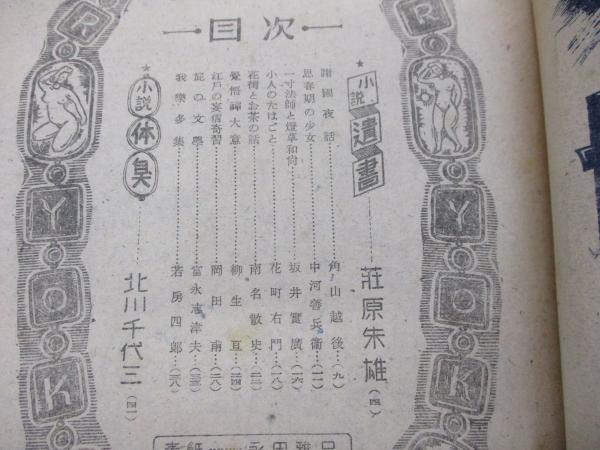 目次
小説 遺書……荘原朱雄(四)
諸國夜話……角山越後(九)
思春期の少女……中河善兵衛(一一)
一寸法師と燈草和尚……坂井實廣(一六)
小人のたはごと……花町右門(一八)
花街とお茶の話……南名散史(二二)
覺悟禪大意……柳生亘(二四)
江戸の妄信奇習……岡田甫(二八)
屁の文學……富永志津夫(三三)
我樂多集……若房四郎(三八)
小説 体臭……北川千代三(四一)
R
Y
O
K
R
Y
O
K